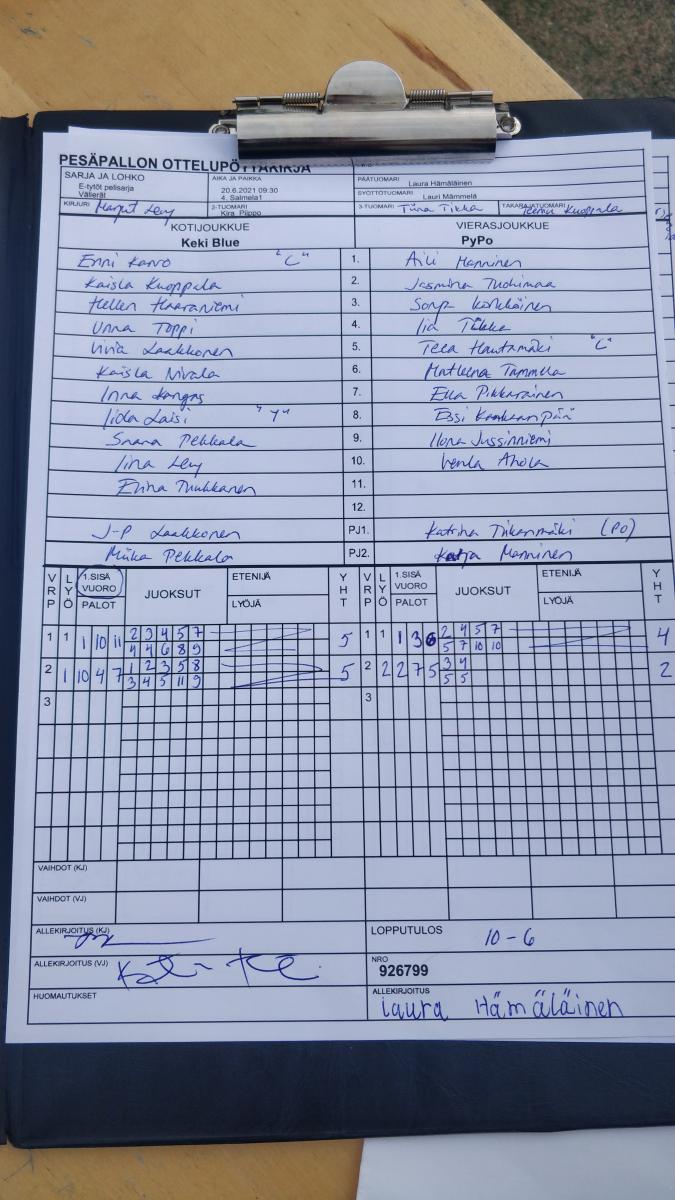 PESÄPALLON OTTELUPÖYTÄKIRJA
SARJA JA LOHKO
E-tytöt pelisarja
Välierät
AIKA JA PAIKKA
20.6.2021 09:30
4. Salmela1
PÄÄTUOMARI
Laura Hämäläinen
SYÖTTÖTUOMARI
Lauri Mämmelä
KIRJURI Margit Levy
2-TUOMARI
Kira Piippo
3-TUOMARI Tiina Tikka
TAKARAJATUOMARI Teemu Kuoppala
KOTIJOUKKUE
Keki Blue
VIERASJOUKKUE
PyPo
Enni Karvo "C" 1. Aili Manninen
Kaisla Kuoppala 2. Jasmina Tuohimaa
Hellen Haaraniemi 3. Sonja
Unna Toppi 4. Iia Tikka
Viivia Laakkonen 5. Teea Hautamäki "C"
Kaisla Nivala 6. Matleena Tammela
Inna Kangas 7. Ella Pikkarainen
Iida Laisi "J" 8. Essi Kankaanpää
Saara Pekkala 9. Ilona Jussinniemi
Iina Levy 10. Venla Ahola
Erina Tuukkanen 11.
12.
J-P Laakkonen PJ1. Katriina Tiikanmäki (PO)
Miika Pekkala PJ2. Katja Manninen
VRP LYÖ 1.SISÄ VUORO PALOT JUOKSUT ETENIJÄ LYÖJÄ YHT VRP LYÖ 1.SISÄ VUORO PALOT JUOKSUT ETENIJÄ LYÖJÄ YHT
1 1 1 10 11 2 3 4 5 7 5 1 1 1 3 6 2 4 5 7 4
4 4 6 8 9 5 7 10 10
2 1 10 4 7 1 2 3 5 8 5 2 2 2 7 5 3 4 2
3 4 5 11 9 5 5
3 3
VAIHDOT (KJ)
VAIHDOT (VJ)
ALLEKIRJOITUS (KJ)
LOPPUTULOS 10-6
ALLEKIRJOITUS (VJ)
NRO
926799
HUOMAUTUKSET
ALLEKIRJOITUS
Laura Hämäläinen